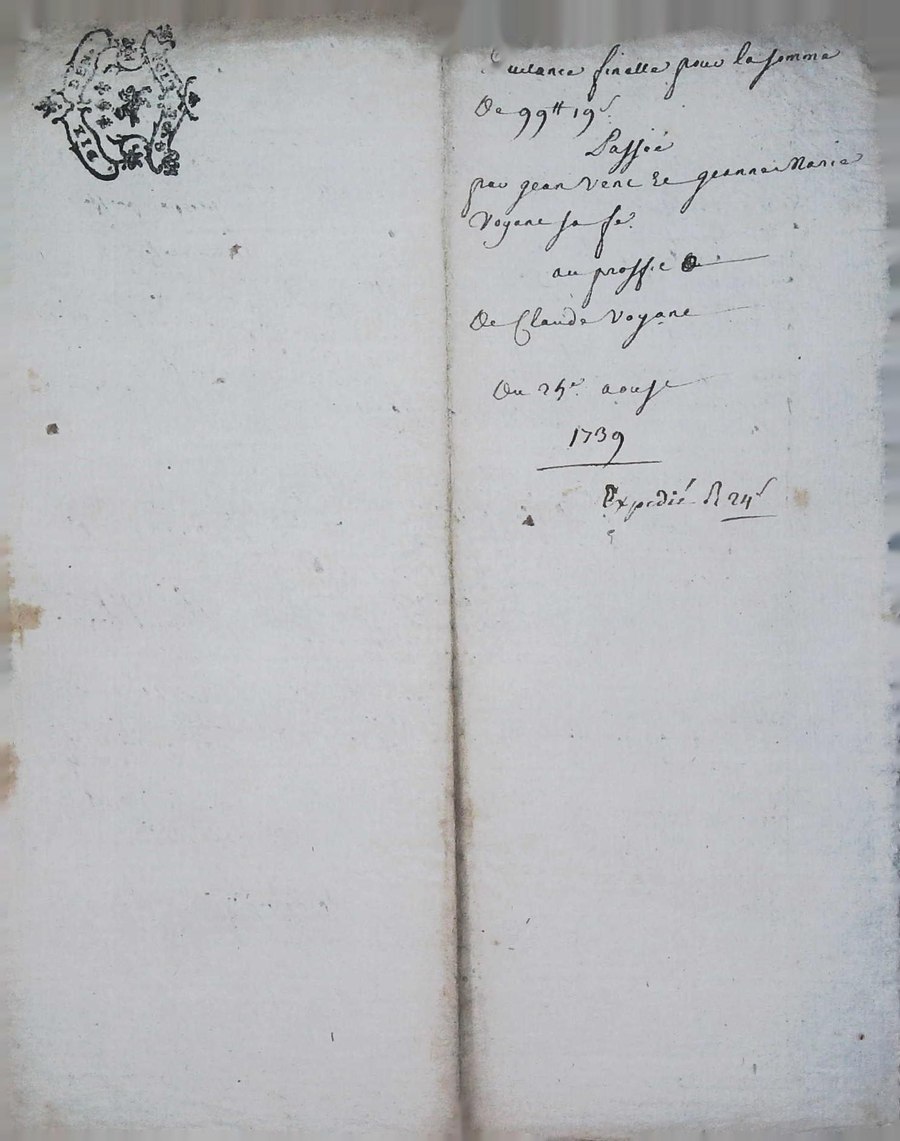 DIX DEN.
uitance finalle pour la somme
De 99tt 19s
Passée
par jean Venc Et jeanne Marie
Voyanc sa fe.
au proffit
De Claude Voyanc
Du 24e aoust
1739
Expedié R 24s